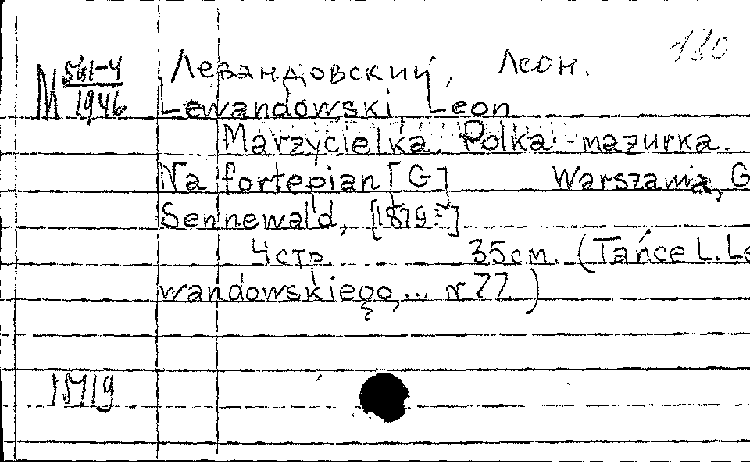 180
М 561-4/1946
Левандовский, Леон.
Lewandowski, Leon
Marzycielka. Polka-mazurka.
Na fortepian [G] Warszawa, G
Sennewald, [1879]
4 стр. 35 см. (Tańce L. Le
wandowskiego,... nr 77.)
15719